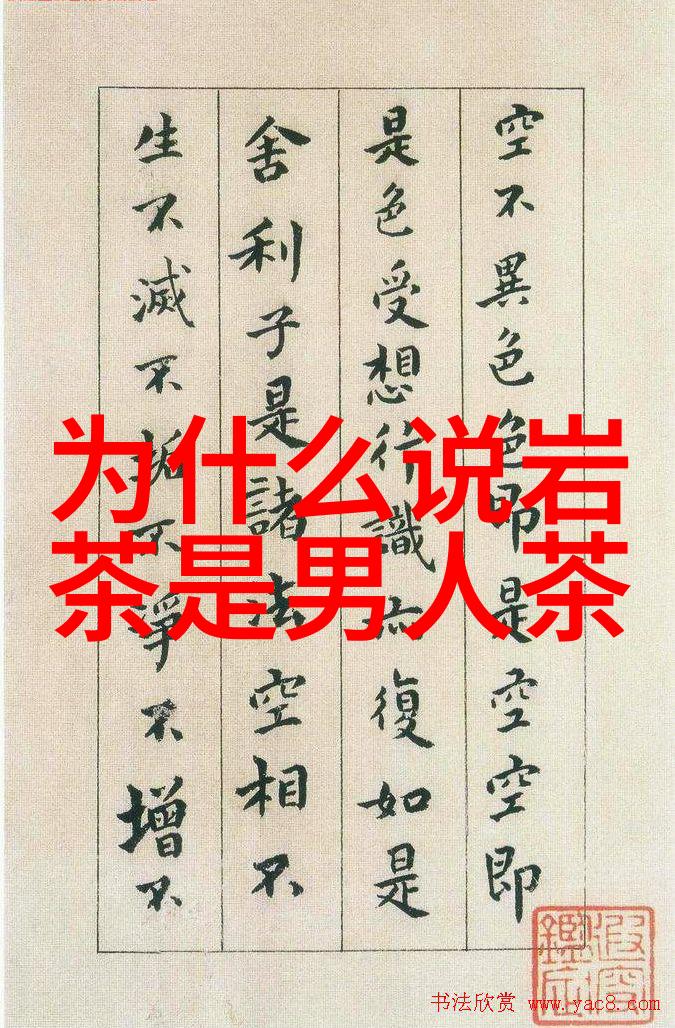 空不異色色即是空空即
是色受想行識亦復如是
舍利子是諸法空相不
生不滅不垢不淨不增不
为什么说岩
茶是男人茶
书法欣赏 www.yac8.com